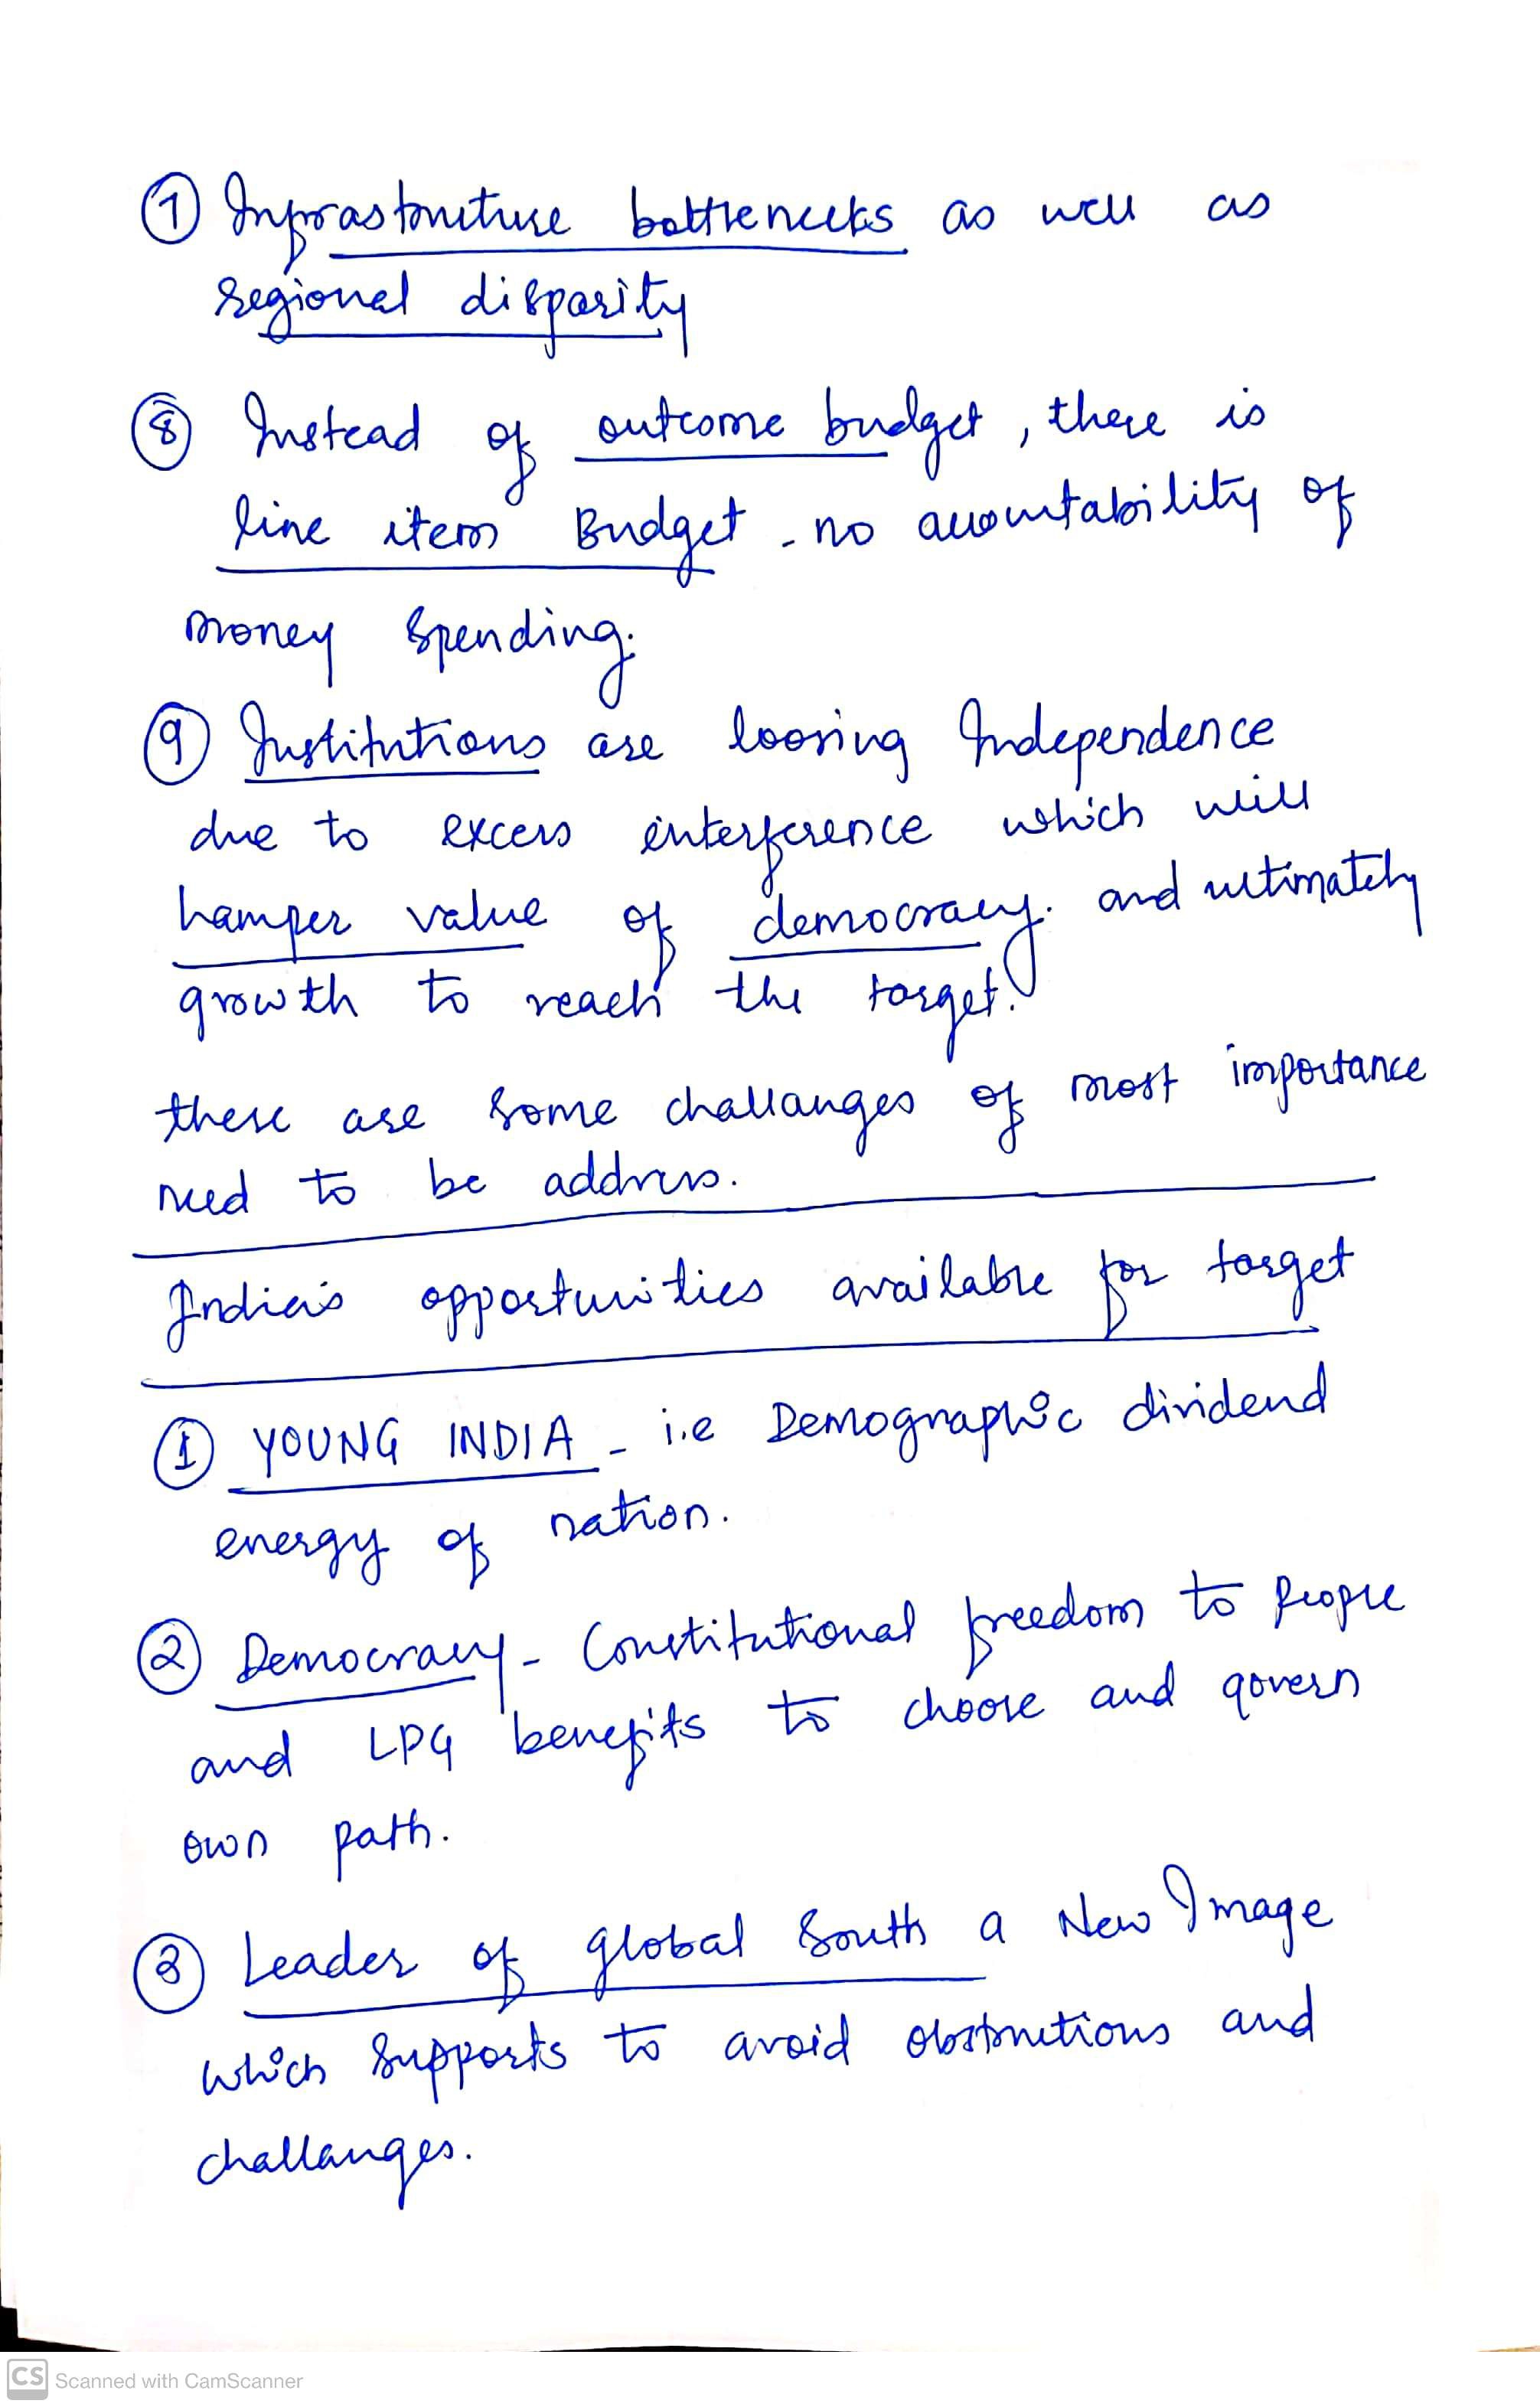 ⑦ Infrastructure bottlenecks as well as
regional disparity
⑧ Instead of outcome budget, there is
line item Budget - no accountability of
money spending.
⑨ Institutions are loosing Independence
due to excess interference which will
hamper value of democracy. and ultimately
growth to reach the target.
these are some challanges of most importance
need to be address.
India's opportunities available for target
① YOUNG INDIA - i.e Demographic dividend
energy of nation.
② Democracy - Constitutional freedom to people
and LPG benefits to choose and govern
own path.
③ Leader of global South a New Image
which supports to avoid obstructions and
challanges.
CS Scanned with CamScanner